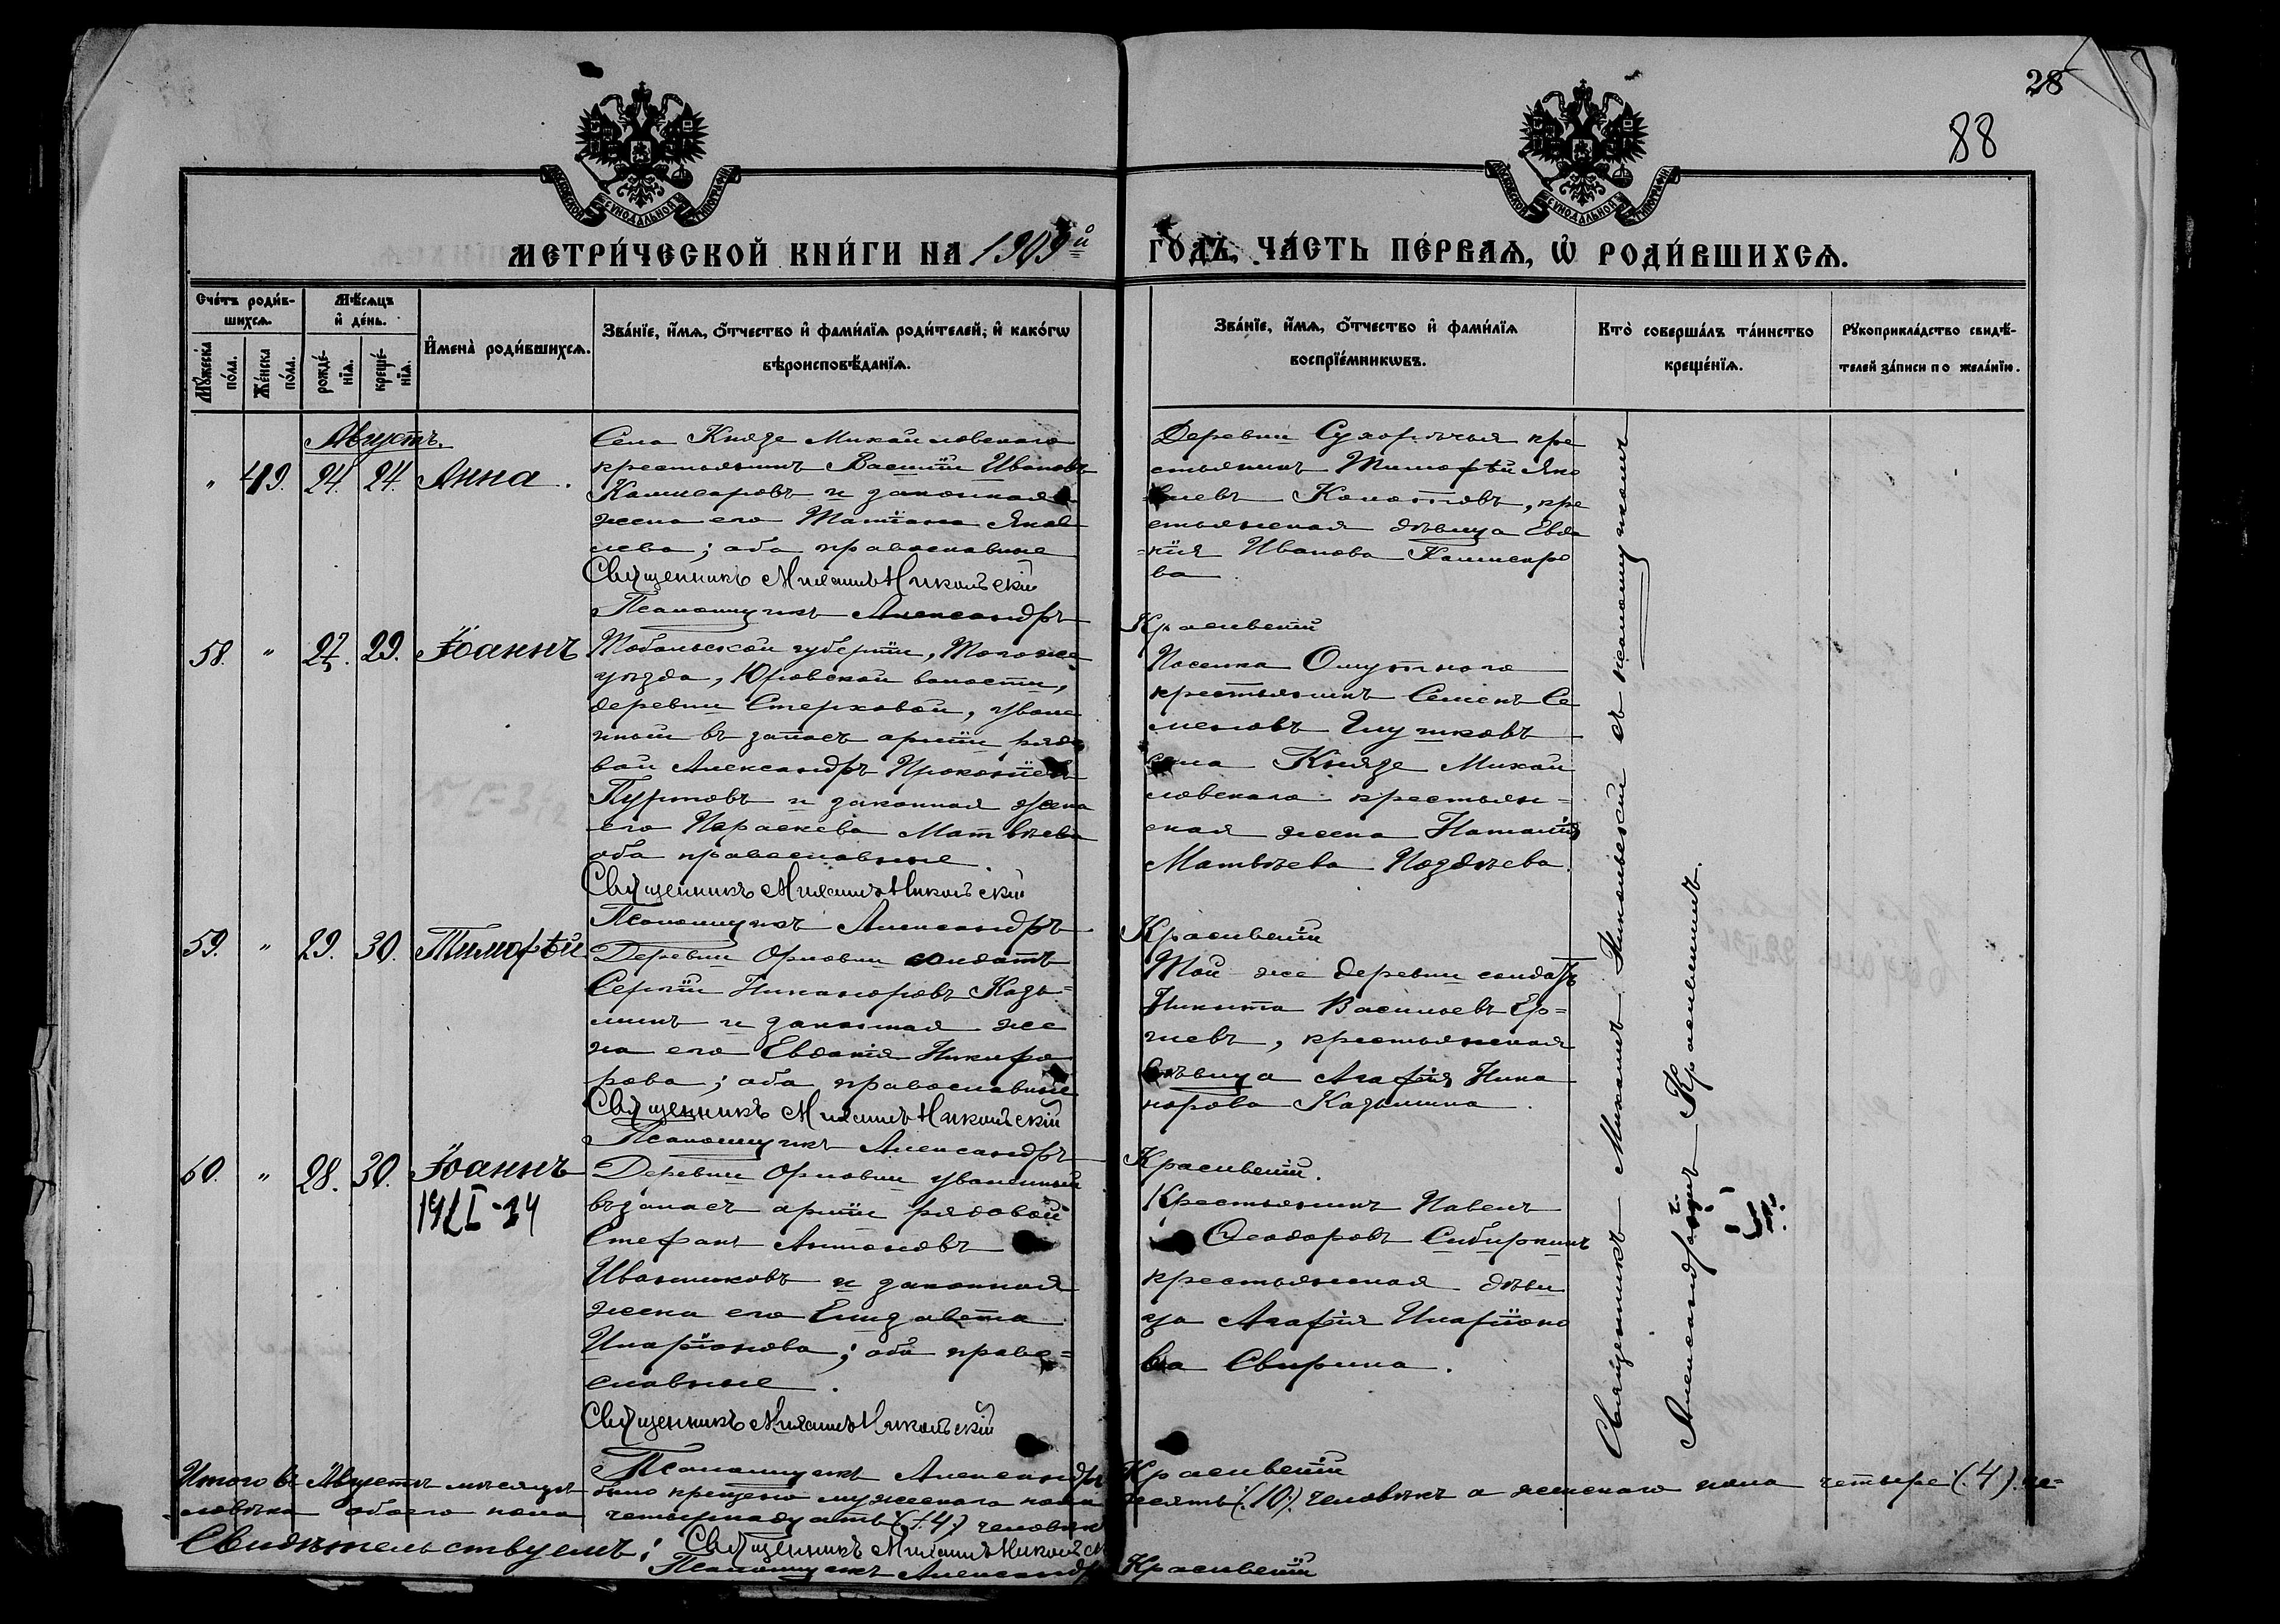 28
88
МОСКОВСКОЙ СѴНОДАЛЬНОЙ ТИПОГРАФІИ
МОСКОВСКОЙ СѴНОДАЛЬНОЙ ТИПОГРАФІИ
МЕТРИ́ЧЕСКОЙ КНИ́ГИ НА 1909й ГОДЪ, ЧА́СТЬ ПЕ́РВАѦ, Ѡ РОДИ́ВШИХСѦ.
Сче́тъ роди́в-
шихсѧ.
Мꙋ́жеска по́ла.
Же́нска по́ла.
Мѣ́сѧцъ
и҆ де́нь.
рожде́-
нїѧ.
креще́-
нїѧ.
И҆мена̀ роди́вшихсѧ.
Зва́нїе, и҆́мѧ, ѻ҆́тчество и҆ фами́лїѧ роди́телей, и҆ како́гѡ
вѣроисповѣ́данїѧ.
Зва́нїе, и҆́мѧ, ѻ҆́тчество и҆ фами́лїѧ
воспрїе́мникѡвъ.
Кто̀ соверша́лъ та́инство
креще́нїѧ.
Рꙋкоприкла́дство свидѣ́-
телей за́писи по жела́нїю.
Августъ.
" 49. 24. 24. Анна.
Села Князе Михайловскаго
крестьянинъ Василій Ивановъ
Комисаровъ и законная
жена его Татіана Яков
лева; оба православные
Священникъ Михаилъ Никольскій
Псаломщикъ Александръ Красивскій
Деревни Сухоречья кре
стьянинъ Тимофѣй Яко
влевъ Колотовъ, кре
стьянская дѣвица Евдо
кія Иванова Комисаро
ва
58. " 27. 29. Іоаннъ
Тобольской губерніи, Того же
уѣзда, Юровской волости,
деревни Стерховой, уволе
нный въ запасъ арміи рядо
вой Александръ Прокопіевъ
Пуртовъ и законная жена
его Параскева Матвѣева
оба православные.
Священникъ Михаилъ Никольскій
Псаломщикъ Александръ Красивскій
Поселка Омутного
крестьянинъ Семенъ Се
меновъ Глушковъ
села Князе Михай
ловскаго крестьян=
ская жена Наталія
Матвѣева Поздѣева.
59. " 29. 30. Тимофѣй
Деревни Орловки солдатъ
Сергій Никаноровъ Казь=
минъ и законная же
на его Евдокія Никифо
рова; оба православные
Священникъ Михаилъ Никольскій
Псаломщикъ Александръ Красивскій.
Той же деревни солдатъ
Никита Васильевъ Ер=
шевъ, крестьянская
дѣвица Агафія Ника
норова Казьмина.
60. " 28. 30. Іоаннъ
Деревни Орловки уволенный
въ запасъ арміи рядовой
Стефанъ Антоновъ
Иванниковъ и законная
жена его Елизавета
Иларіонова; оба право=
славные.
Священникъ Михаилъ Никольскій
Псаломщикъ Александръ Красивскій
Крестьянинъ Павелъ
Ѳеодоровъ Сибиркинъ
крестьянская дѣви
ца Агафія Иларіоно
ва Свирина.
Священникъ Михаилъ Никольскій съ псаломщикомъ
Александромъ Красивскимъ.
Итого въ Августѣ мѣсяцѣ было крещено мужескаго пола десять (10) человѣкъ а женскаго пола четыре (4) че=
ловѣка обоего пола четырнадцать (14) человѣкъ
Свидѣтельствуемъ: Священникъ Михаилъ Никольскій
Псаломщикъ Александръ Красивскій